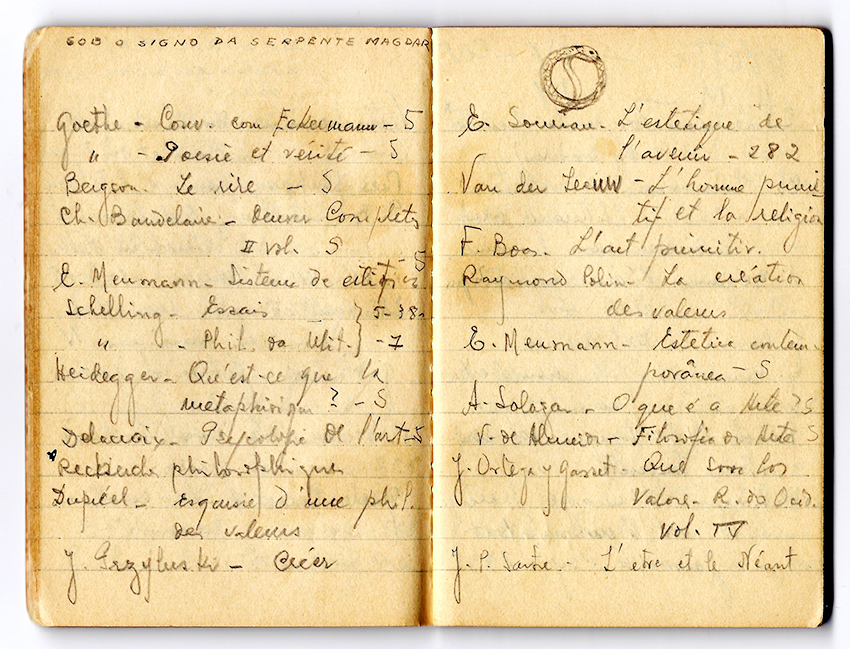 SOB O SIGNO DA SERPENTE MAGDAR
Goethe - Conv. com Eckermann - S
" - Poesie et vérité - S
Bergson - Le rire - S
Ch. Baudelaire - Oeuvres Completes
II vol. S
E. Meumann - Sistema de estética S
Schelling - Essais } S-382
" - Phil. da Mit. } -7
Heidegger - Qu'est-ce que la
metaphisique? - S
Delacroix - Psycologie de l'art - S
Recherche philosophiques
Dupréel - Esquisse d'une phil.
des valeurs
J. Przyluski - Créer
E. Souriau - L'estetique de
l'avenir - 282
Van der Leeuw - L'homme primi
tif et la religion
F. Boas - L'art primitiv.
Raymond Polin - La création
des valeurs
E. Meumann - Estetica contem-
porânea - S
A. Salazar - O que é a Arte? S
V. de Almeida - Filosofia da Arte S
J. Ortega y Gasset - Que son los
Valores - R. do Ocid.
Vol. IV
J. P. Sartre - L'etre et le Néant